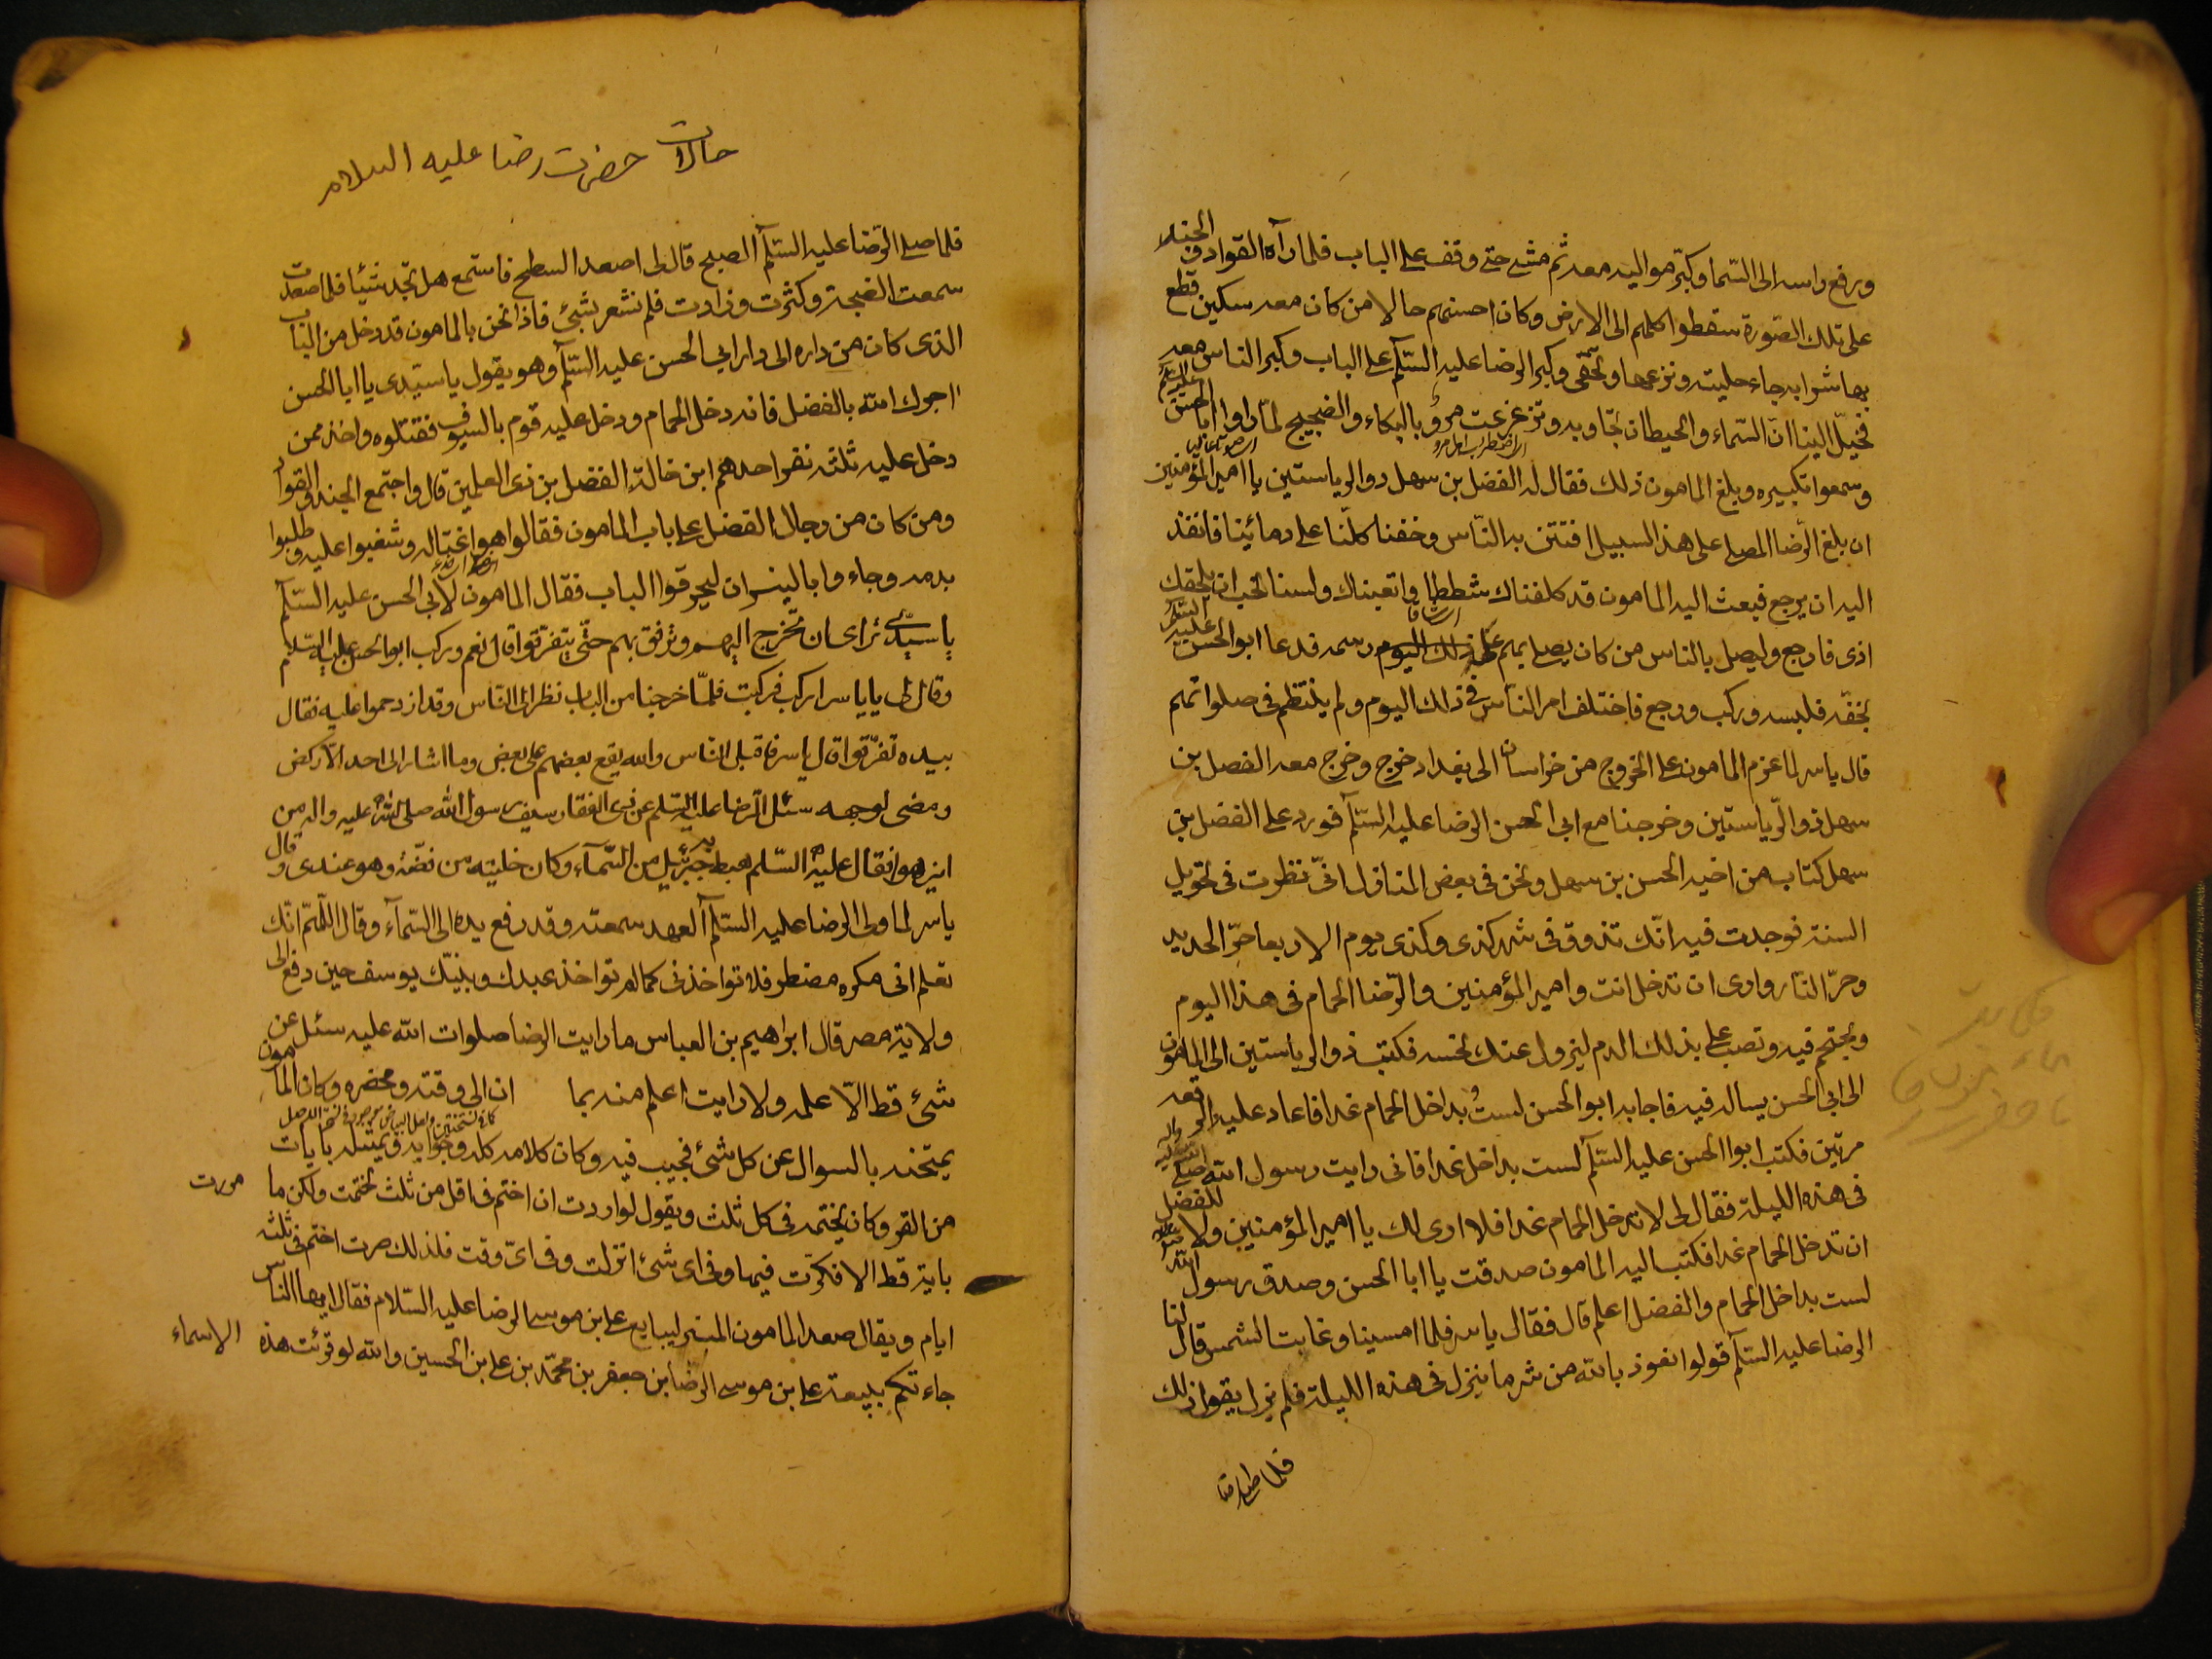 ورفع راسه الى السّما وكبّر مواليه معه ثم مشى حتى وقف على الباب فلما رآه القواد والجند
على تلك الصّورة سقطوا كلهم الى الارض وكان احسنهم حالا من كان معه سكين قطع
بها شرابه جاء حليته ونزعها وتحفّى وكبر الرضا عليه السّلم على الباب وكبر الناس معه
فخيّل الينا انّ السّماء والحيطان تجاوبه وتزعزعت مرو بالبكاء والضجيج لمّا راوا ابا الحسن عليه السّلم
وسمعوا تكبيره وبلغ المامون ذلك فقال له الفضل بن سهل ذوالرياستين يا امير المؤمنين
ان بلغ الرّضا المصلى على هذا السبيل افتتن به النّاس وخفنا كلّنا على دمائنا فانفذ
اليه ان يرجع فبعث اليه المامون قد كلفناك شططا واتعبناك ولسنا نحب ان يلحقك
اذى فارجع وليصل بالناس من كان يصلى بهم على رسمه فدعا ابو الحسن عليه السّلم
بخفّه فلبسه وركب ورجع فاختلف امر النّاس فى ذلك اليوم ولم ينتظم فى صلواتهم
قال ياسر لما عزم المامون على الخروج من خراسان الى بغداد خرج وخرج معه الفضل بن
سهل ذو الرّياستين وخرجنا مع ابى الحسن الرضا عليه السّلم فورد على الفضل بن
سهل كتاب من اخيه الحسن بن سهل ونحن فى بعض المنازل انّى نظرت فى تحويل
السنة فوجدت فيه انّك تذوق فى شهر كذى وكذى يوم الاربعا حرّ الحديد
وحرّ النّار وارى ان تدخل انت وامير المؤمنين والرّضا الحمام فى هذا اليوم
وتحتجم فيه وتصب على بذلك الدم ليزول عنك نحسه فكتب ذو الرياستين الى المامون
الى ابى الحسن يساله فيه فاجابه ابو الحسن لست بداخل الحمام غدا فاعاد عليه الرقعه
مرّتين فكتب ابو الحسن عليه السّلم لست بداخل غدا فانى رايت رسول الله صلى الله عليه واله
فى هذه الليلة فقال لى لا تدخل الحمام غدا فلا ارى لك يا امير المؤمنين ولا للفضل
ان تدخل الحمام غدا فكتب اليه المامون صدقت يا ابا الحسن وصدق رسول الله
لست بداخل الحمام والفضل اعلم قال فقال ياسر فلما امسينا وغابت الشمس قال لنا
الرضا عليه السّلم قولوا نعوذ بالله من شر ما ينزل فى هذه الليلة فلم نزل يقول ذلك
حالات حضرت رضا عليه السلام
فلما صلى الرّضا عليه السّلم الصبح قال لى اصعد السطح فاستمع هل تجد شيئا فلما صعدت
سمعت الضجة وكثرت وزادت فلم نشعر بشئ فاذا نحن بالمامون قد دخل من الباب
الذى كان من داره الى دار ابى الحسن عليه السّلم وهو يقول يا سيّدى يا ابا الحسن
اجرك الله بالفضل فانه دخل الحمام ودخل عليه قوم بالسيوف فقتلوه واخذ ممن
دخل عليه ثلثه نفر احدهم ابن خالة الفضل بن ذى العلمين قال واجتمع الجند والقواد
ومن كان من رجال الفضل على باب المامون فقالوا هو اغتاله وشغبوا عليه وطلبوا
بدمه وجاءوا بالنيران ليحرقوا الباب فقال المامون لابى الحسن عليه السّلم
يا سيّدى ترى ان تخرج اليهم وترفق بهم حتّى يتفرّقوا قال نعم وركب ابو الحسن عليه السّلم
وقال لى يا ياسر اركب فركبت فلمّا خرجنا من الباب نظر الى النّاس وقد ازدحموا عليه فقال
بيده تفرّقوا قال ياسر فاقبل النّاس والله يقع بعضهم على بعض وما اشار الى احد الّا ركض
ومضى لوجهه سئل الرّضا عليه السّلم عن ذى الفقار سيف رسول الله صلى الله عليه واله من
اين هو فقال عليه السّلم هبط به جبرئيل من السّمآء وكان حليته من فضّة وهو عندى وقال
ياسر لما ولى الرضا عليه السّلم العهد سمعته وقد رفع يده الى السّمآء وقال اللّهمّ انّك
تعلم انى مكره مضطر فلا تواخذنى كما لم تواخذ عبدك ونبيّك يوسف حين دفع الى
ولاية مصر قال ابراهيم بن العباس ما رايت الرضا صلوات الله عليه سئل عن
شئ قط الّا علمه ولا رايت اعلم منه بما ان الى وقته ومحضره وكان المامون
يمتحنه بالسوال عن كل شئ فيجيب فيه وكان كلامه كله وجوابه وتمثله بايات
من القر وكان يختمه فى كل ثلث ويقول لو اردت ان اختم فى اقل من ثلث لختمت ولكن ما مررت
باية قط الا فكرت فيها وفى اى شئ انزلت وفى اىّ وقت فلذلك صرت اختم فى ثلثه
ايام ويقال صعد المامون المنبر ليبايع على بن موسى الرضا عليه السّلام فقال ايها الناس
جاءتكم بيعة على بن موسى الرّضا بن جعفر بن محمّد بن على بن الحسين والله لو قرئت هذه الاسماء